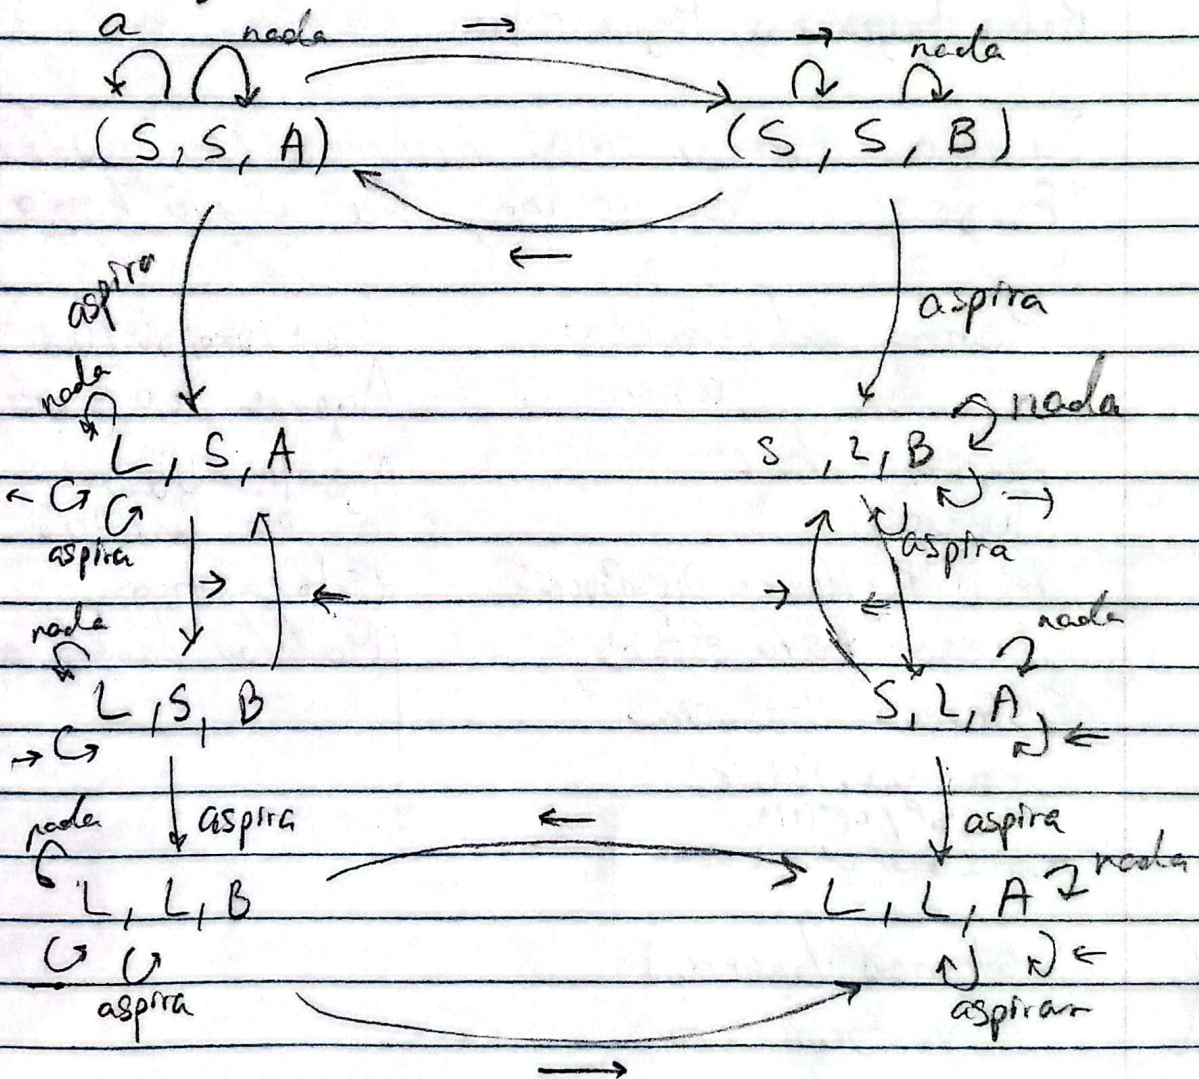 a nada → → nada
(S, S, A) (S, S, B)
←
aspira aspira
nada nada
L, S, A S, L, B
← →
aspira aspira
→ ← → ←
nada nada
L, S, B S, L, A
→ ←
aspira ← aspira
nada nada
L, L, B L, L, A
←
aspira aspirar
→